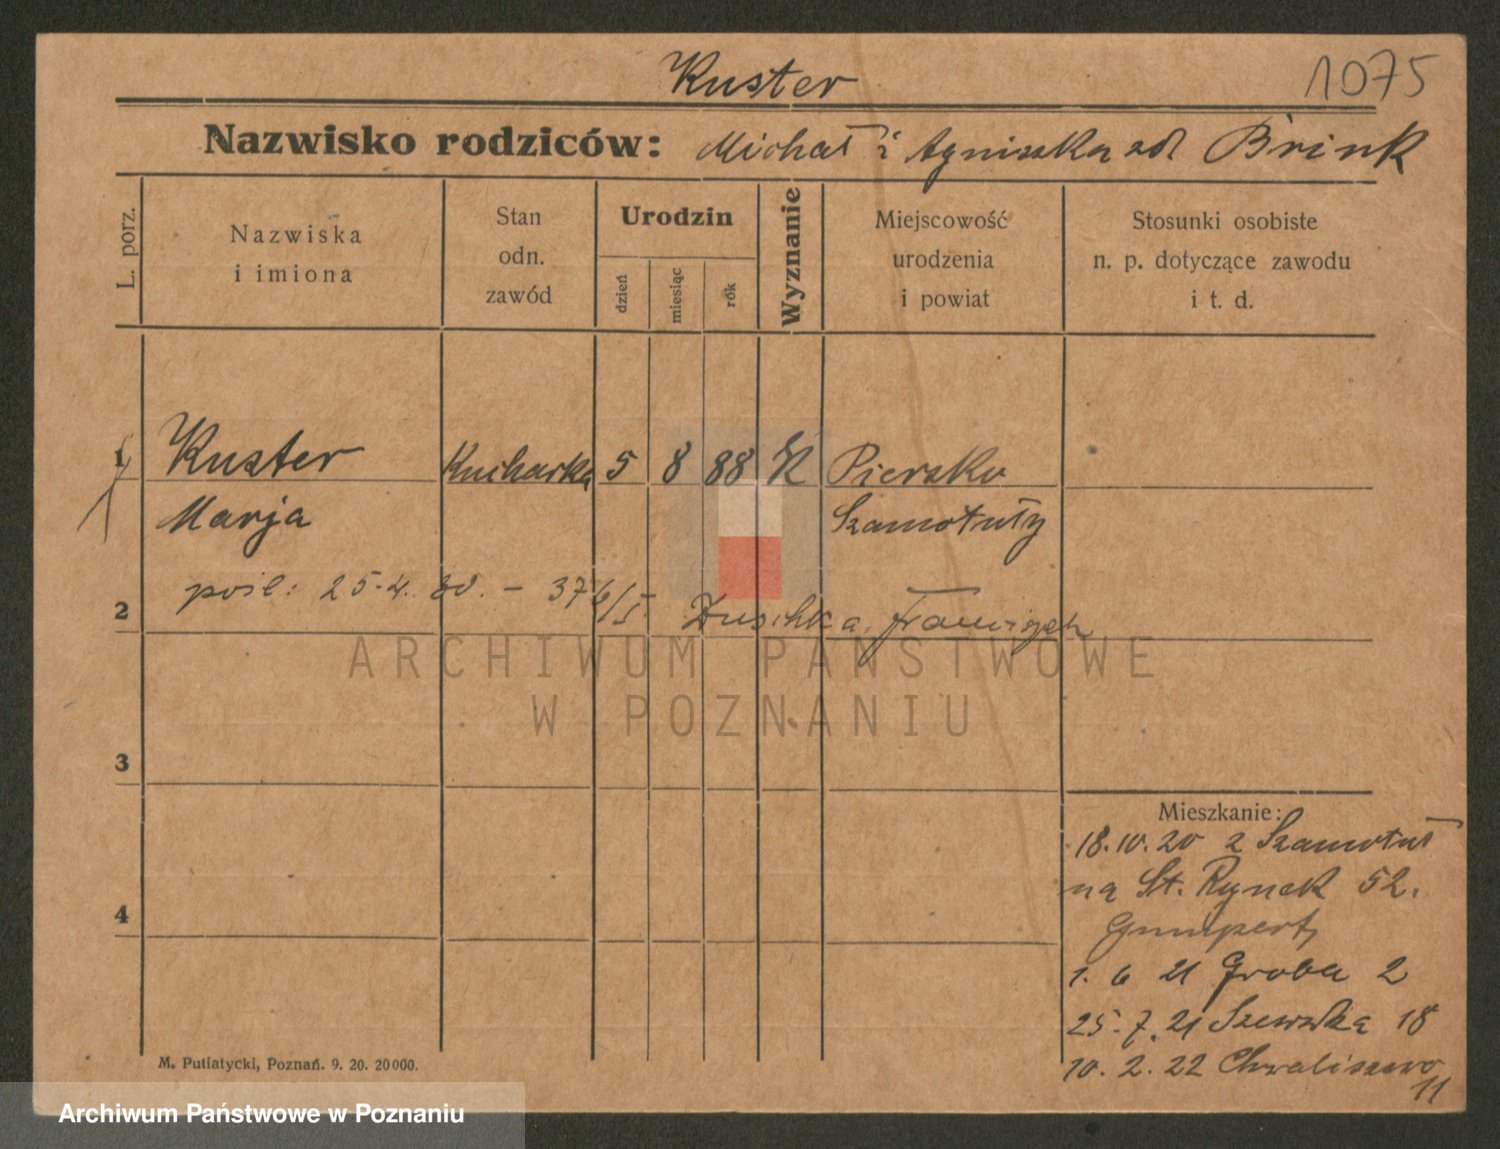 Kuster
1075
Nazwisko rodziców: Michał i Agniszka zd Brink
L. porz.
Nazwiska i imiona
Stan odn. zawód
Urodzin
dzień
miesiąc
rók
Wyznanie
Miejscowość urodzenia i powiat
Stosunki osobiste n. p. dotyczące zawodu i t. d.
1 Kuster Kucharka 5 8 88 K Piersko
Marja Szamotuły
pośl: 25.4. 30. – 37 6/I.
2
3
4
Mieszkanie:
18.10.20 z Szamotuł
na St. Rynek 52.
Gumpert
1. 6 21 Groba 2
25. 7. 21 Szewska 18
10. 2. 22 Chwaliszewo
11
M. Putiatycki, Poznań. 9. 20. 20000.
ARCHIWUM PAŃSTWOWE
W POZNANIU
Archiwum Państwowe w Poznaniu